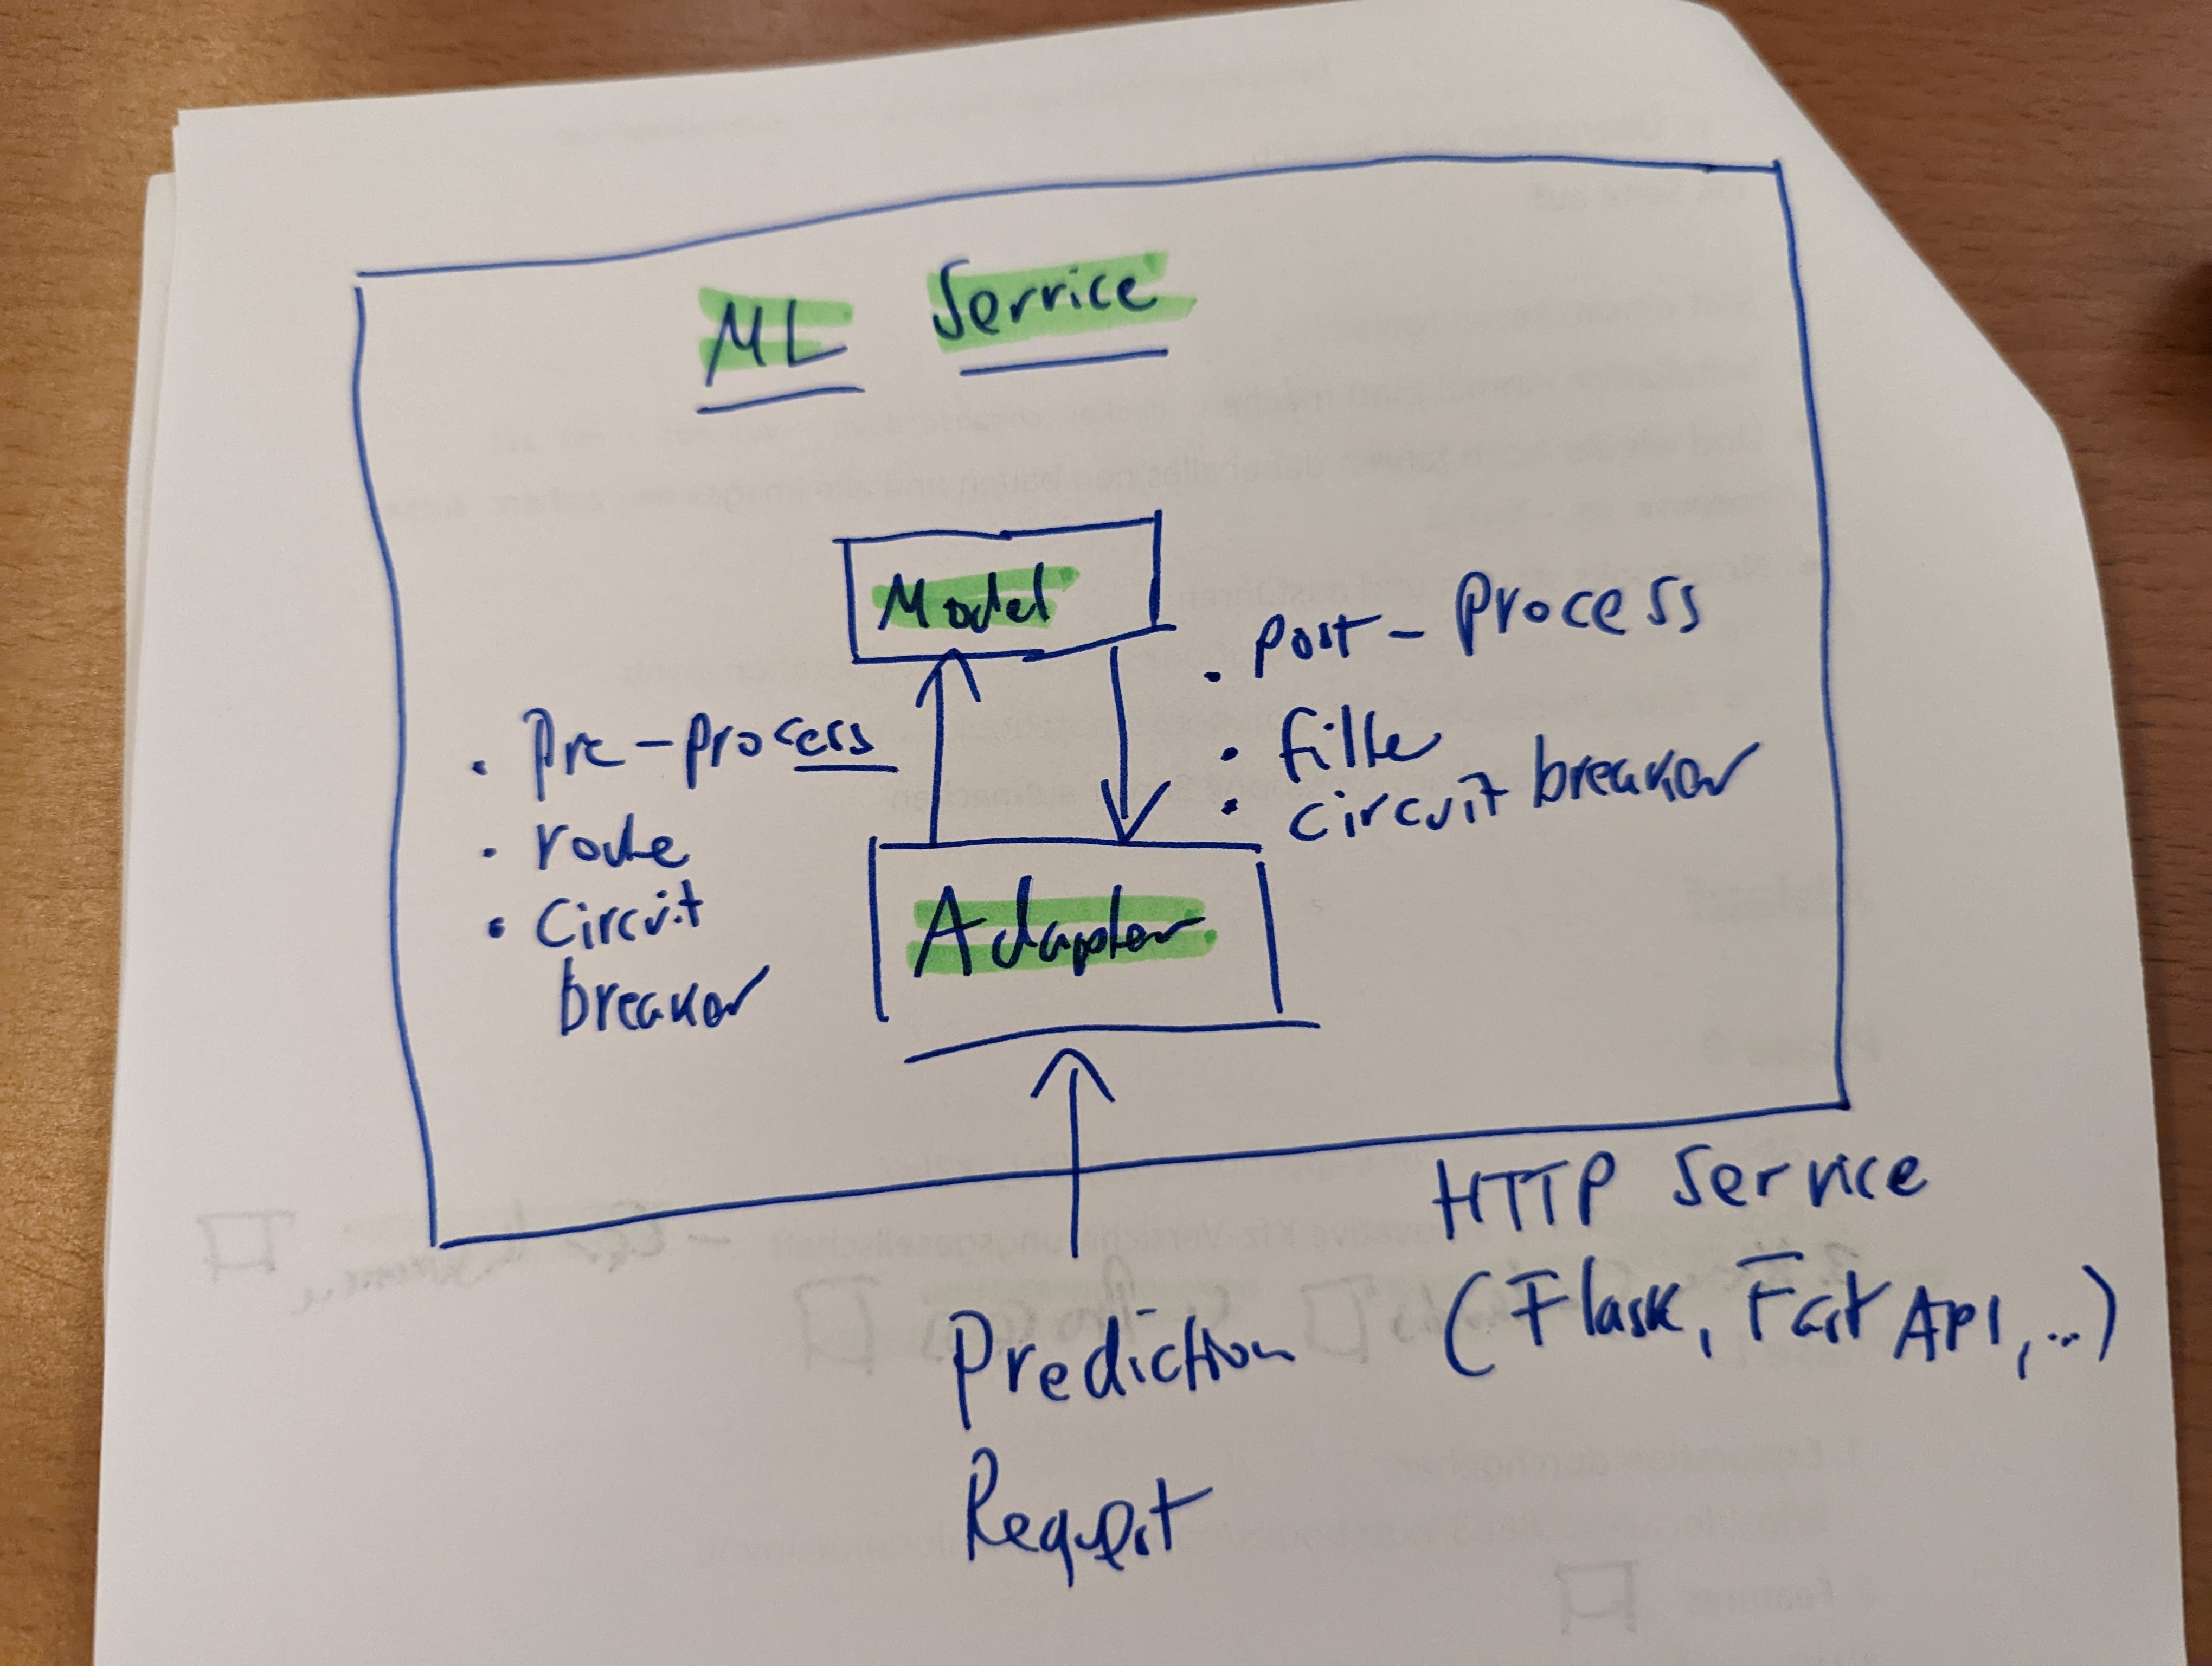 ML Service
Model
• post-process
• filter
• circuit breaker
• Pre-process
• route
• Circuit
breaker
Adapter
HTTP Service
(Flask, Fast API, ...)
Prediction
Request